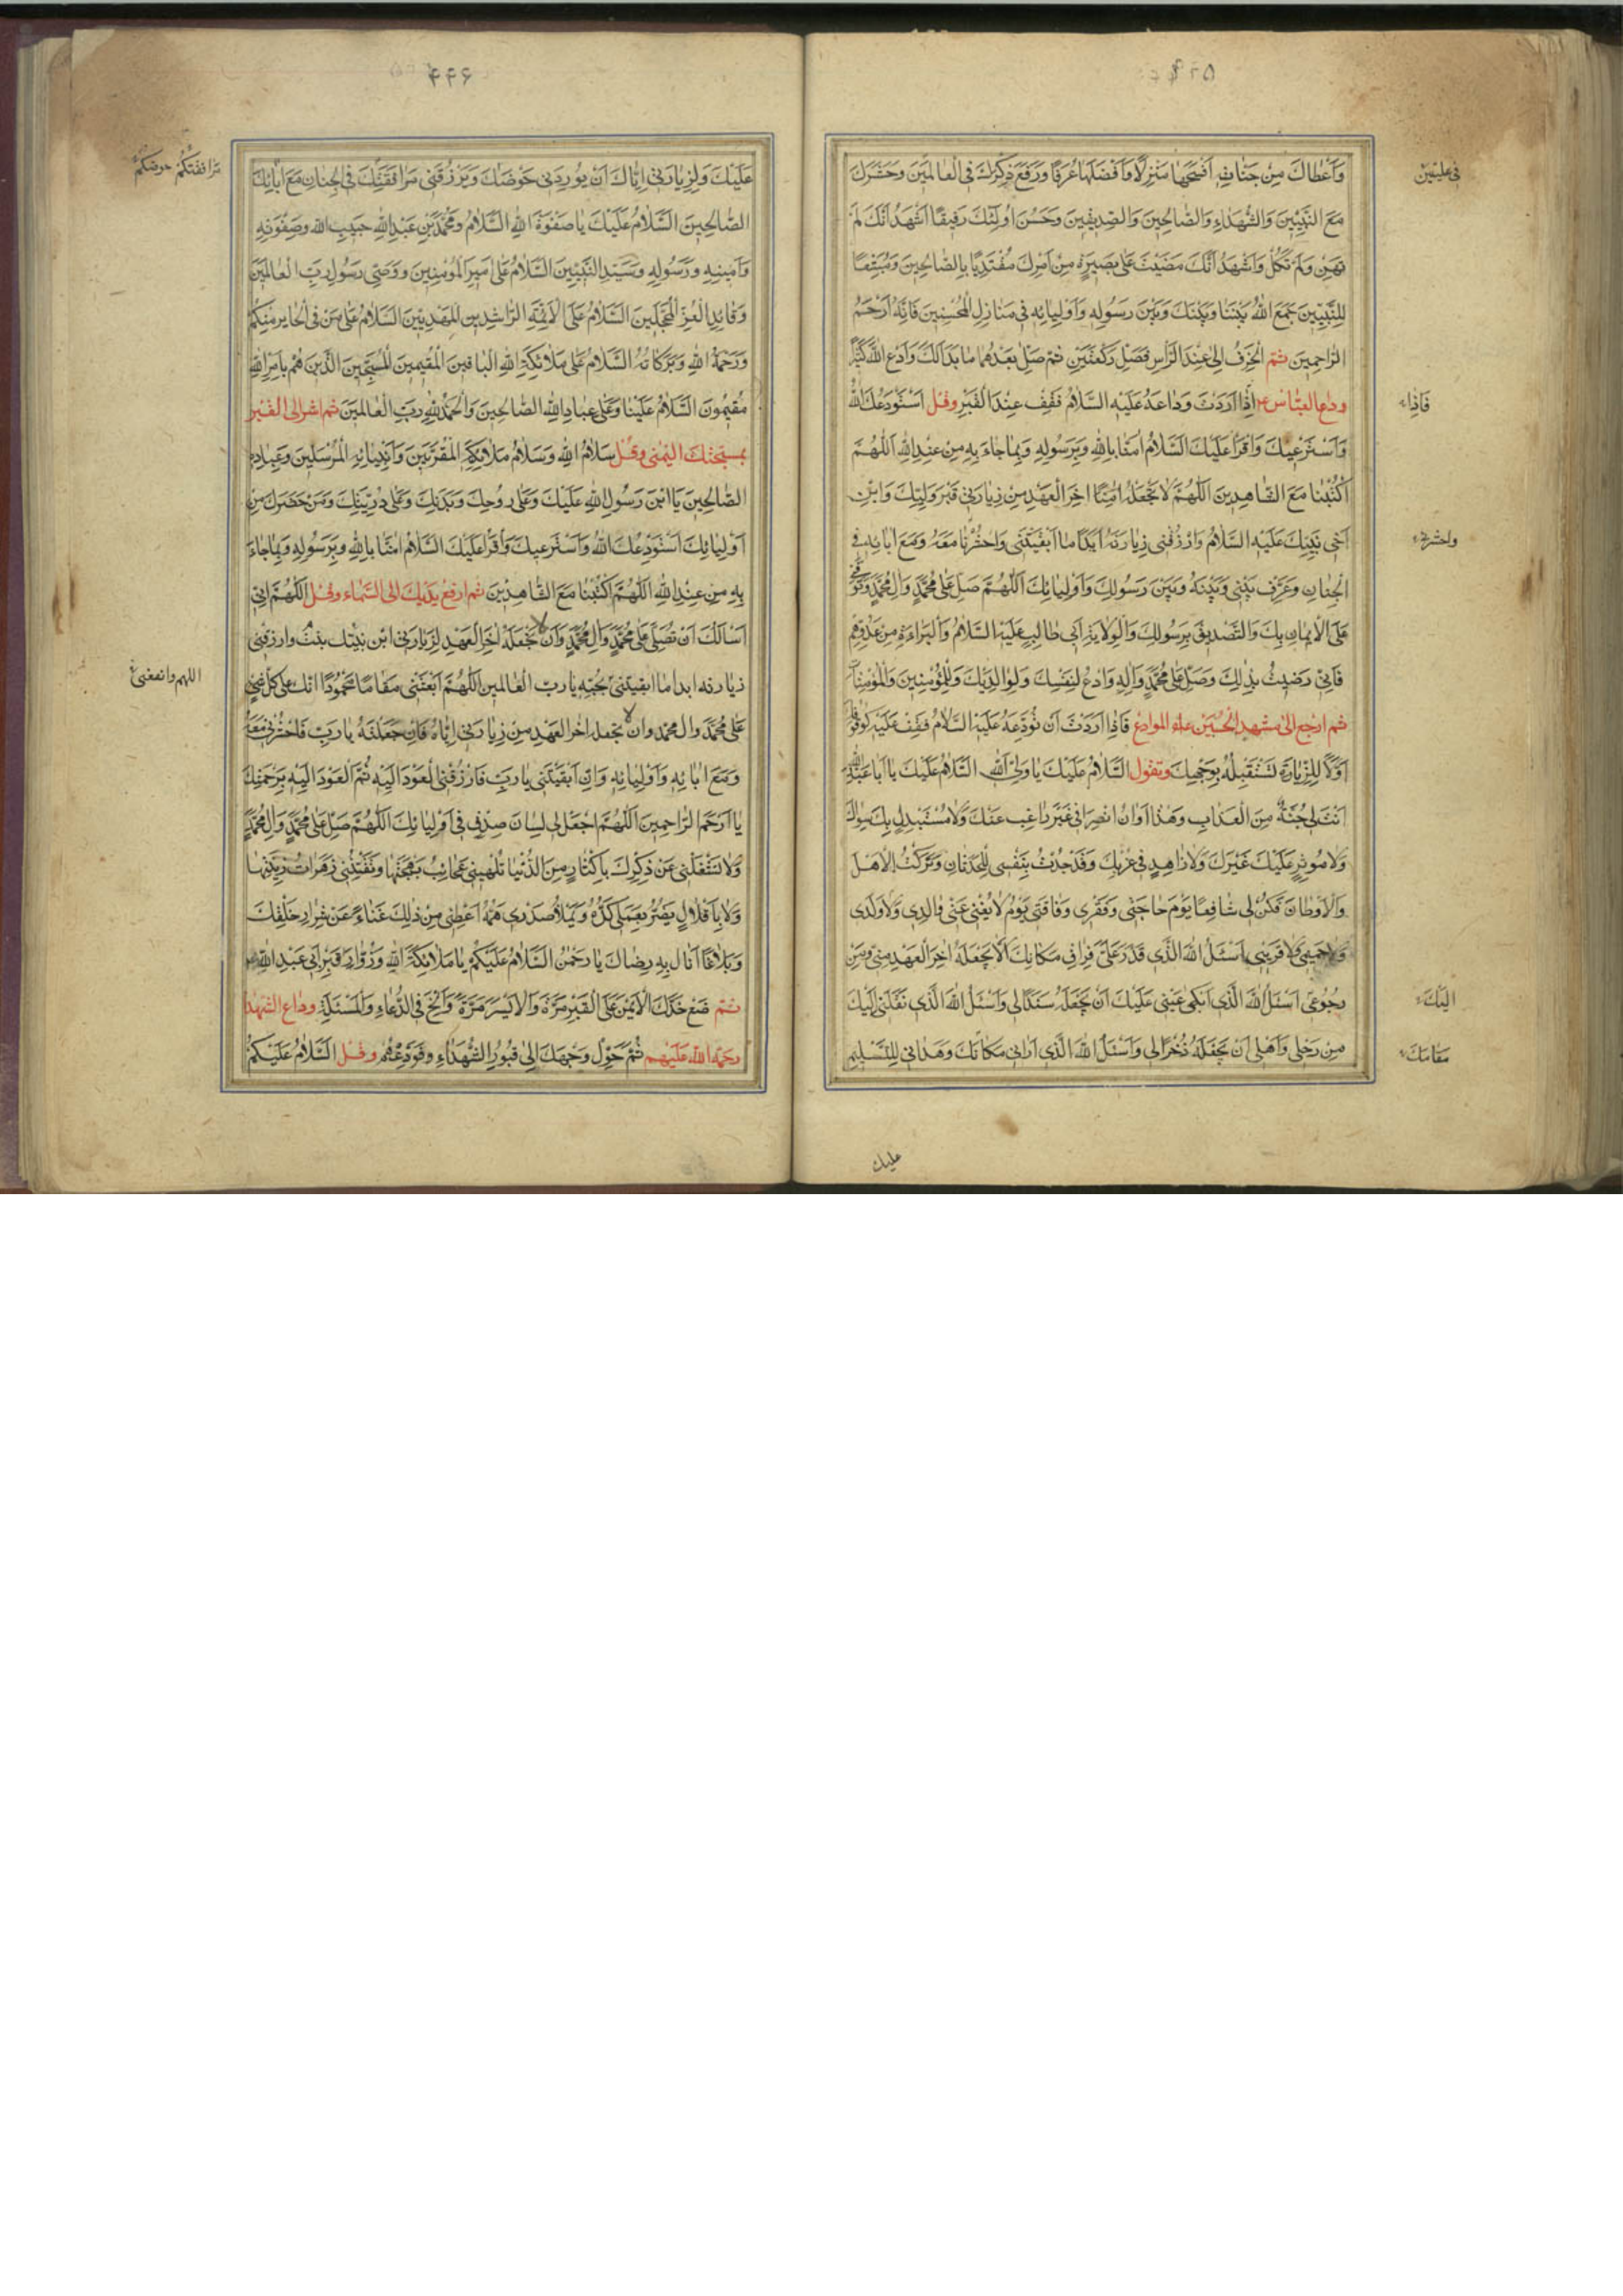 ۴۴۵
وَاَعْطاكَ مِنْ جَنّاتِهِ اَفْسَحَها مَنْزِلًا وَاَفْضَلَها غُرَفًا وَرَفَعَ ذِكْرَكَ فِى الْعالَمينَ وَحَشَرَكَ
فى عليّين
مَعَ النَّبِيّينَ وَالشُّهَداءِ وَالصّالِحينَ وَالصِّدّيقينَ وَحَسُنَ اُولئِكَ رَفيقًا اَشْهَدُ اَنَّكَ لَمْ
تَهِنْ وَلَمْ تَنْكُلْ وَاَشْهَدُ اَنَّكَ مَضَيْتَ عَلى بَصيرَةٍ مِنْ اَمْرِكَ مُقْتَدِيًا بِالصّالِحينَ وَمُتَّبِعًا
لِلنَّبِيّينَ جَمَعَ اللّهُ بَيْنَنا وَبَيْنَكَ وَبَيْنَ رَسُولِهِ وَاَوْلِيائِهِ فى مَنازِلِ الْمُحْسِنينَ فَاِنَّهُ اَرْحَمُ
الرّاحِمينَ ثمّ انْحَرِفْ اِلى عِنْدِ الرَّأْسِ فَصَلِّ رَكْعَتَيْنِ ثُمَّ صَلِّ بَعْدَهُما ما بَدا لَكَ وَادْعُ اللّهَ كَثيرًا
وداع العبّاس ع اِذا اَرَدْتَ وَداعَهُ عَلَيْهِ السَّلامُ فَقِفْ عِنْدَ الْقَبْرِ وقل اَسْتَوْدِعُكَ اللّهَ
فَاِذا
وَاَسْتَرْعيكَ وَاَقْرَأُ عَلَيْكَ السَّلامَ امَنّا بِاللّهِ وَبِرَسُولِهِ وَبِما جاءَ بِهِ مِنْ عِنْدِ اللّهِ اَللّهُمَّ
اكْتُبْنا مَعَ الشّاهِدينَ اَللّهُمَّ لا تَجْعَلْهُ اخِرَ الْعَهْدِ مِنْ زِيارَتى قَبْرَ وَلِيِّكَ وَابْنِ
اَخى نَبِيِّكَ عَلَيْهِ السَّلامُ وَارْزُقْنى زِيارَتَهُ اَبَدًا ما اَبْقَيْتَنى وَاحْشُرْنا مَعَهُ وَمَعَ ابائِهِ فِى
واحشرنى
الْجِنانِ وَعَرِّفْ بَيْنى وَبَيْنَهُ وَبَيْنَ رَسُولِكَ وَاَوْلِيائِكَ اَللّهُمَّ صَلِّ عَلى مُحَمَّدٍ وَالِ مُحَمَّدٍ وَتَوَفَّنى
عَلَى الْايمانِ بِكَ وَالتَّصْديقِ بِرَسُولِكَ وَالْوِلايَةِ لِاَبى طالِبٍ عَلَيْهِ السَّلامُ وَالْبَراءَةِ مِنْ عَدُوِّهِمْ
فَاِنّى رَضيتُ بِذلِكَ وَصَلَّى عَلى مُحَمَّدٍ وَالِهِ وَادْعُ لِنَفْسِكَ وَلِوالِدَيْكَ وَلِلْمُؤْمِنينَ وَالْمُؤْمِناتِ
ثم ارجع الى مشهد الحسين للوداع فَاِذا اَرَدْتَ اَنْ تُوَدِّعَهُ عَلَيْهِ السَّلامُ فَقِفْ عَلَيْهِ كَوُقُوفِكَ
اَوَّلًا لِلزِّيارَةِ تَسْتَقْبِلُهُ بِوَجْهِكَ وتقول اَلسَّلامُ عَلَيْكَ يا وَلِىَّ اللّهِ اَلسَّلامُ عَلَيْكَ يا اَبا عَبْدِ اللّهِ
اَنْتَ لى جُنَّةٌ مِنَ الْعَذابِ وَهذا اَوانُ انْصِرافى غَيْرَ راغِبٍ عَنْكَ وَلا مُسْتَبْدِلٍ بِكَ سِواكَ
وَلا مُوثِرٍ عَلَيْكَ غَيْرَكَ وَلا زاهِدٍ فى قُرْبِكَ وَقَدْ جُدْتُ بِنَفْسى لِلْحَدَثانِ وَتَرَكْتُ الْاَهْلَ
وَالْاَوْطانَ فَكُنْ لى شافِعًا يَوْمَ حاجَتى وَفَقْرى وَفاقَتى يَوْمَ لا يُغْنى عَنّى والِدى وَلا وَلَدى
وَلا حَميمى وَلا قَريبى اَسْئَلُ اللّهَ الَّذى قَدَّرَ عَلَىَّ فِراقَ مَكانِكَ اَلّا يَجْعَلَهُ اخِرَ الْعَهْدِ مِنّى وَمِنْ
رُجُوعى اَسْئَلُ اللّهَ الَّذى اَبْكى عَيْنى عَلَيْكَ اَنْ يَجْعَلَهُ سَنَدًا لى وَاَسْئَلُ اللّهَ الَّذى نَقَلَنى اِلَيْكَ
اليك
مِنْ رَحْلى وَاَهْلى اَنْ يَجْعَلَهُ ذُخْرًا لى وَاَسْئَلُ اللّهَ الَّذى اَرانى مَكانَكَ وَهَدانى لِلتَّسْليمِ
مقامك
عليك
۴۴۶
عَلَيْكَ وَلِزِيارَتى اِيّاكَ اَنْ يُورِدَنى حَوْضَكَ وَيَرْزُقَنى مُرافَقَتَكَ فِى الْجِنانِ مَعَ ابائِكَ
مرافقتكم حوضكم
الصّالِحينَ اَلسَّلامُ عَلَيْكَ يا صَفْوَةَ اللّهِ اَلسَّلامُ وَمُحَمَّدِ بْنِ عَبْدِ اللّهِ حَبيبِ اللّهِ وَصَفْوَتِهِ
وَاَمينِهِ وَرَسُولِهِ وَسَيِّدِ النَّبِيّينَ اَلسَّلامُ عَلى اَميرِ الْمُؤْمِنينَ وَوَصِىِّ رَسُولِ رَبِّ الْعالَمينَ
وَقائِدِ الْغُرِّ الْمُحَجَّلينَ اَلسَّلامُ عَلَى الْاَئِمَّةِ الرّاشِدينَ الْمَهْدِيّينَ اَلسَّلامُ عَلى مَنْ فِى الْحايِرِ مِنْكُمْ
وَرَحْمَةُ اللّهِ وَبَرَكاتُهُ اَلسَّلامُ عَلى مَلائِكَةِ اللّهِ الْباقينَ الْمُقيمينَ الْمُسَبِّحينَ الَّذينَ هُمْ بِاَمْرِ اللّهِ
مُقيمُونَ اَلسَّلامُ عَلَيْنا وَعَلى عِبادِ اللّهِ الصّالِحينَ وَالْحَمْدُ لِلّهِ رَبِّ الْعالَمينَ ثم اشر الى القبر
بمسبّحتك اليمنى وقل سَلامُ اللّهِ وَسَلامُ مَلائِكَتِهِ الْمُقَرَّبينَ وَاَنْبِيائِهِ الْمُرْسَلينَ وَعِبادِهِ
الصّالِحينَ يَا ابْنَ رَسُولِ اللّهِ عَلَيْكَ وَعَلى رُوحِكَ وَبَدَنِكَ وَعَلى ذُرِّيَّتِكَ وَمَنْ حَضَرَكَ مِنْ
اَوْلِيائِكَ اَسْتَوْدِعُكَ اللّهَ وَاَسْتَرْعيكَ وَاَقْرَأُ عَلَيْكَ السَّلامَ امَنّا بِاللّهِ وَبِرَسُولِهِ وَبِما جاءَ
بِهِ مِنْ عِنْدِ اللّهِ اَللّهُمَّ اكْتُبْنا مَعَ الشّاهِدينَ ثم ارفع يديك الى السّماء وقل اَللّهُمَّ اِنّى
اَسْاَلُكَ اَنْ تُصَلِّىَ عَلى مُحَمَّدٍ وَالِ مُحَمَّدٍ وَاَنْ لا تَجْعَلَهُ اخِرَ الْعَهْدِ لِزِيارَتى ابن بنت وارزقنى
زيارته ابدا ما ابقيتنى بحبّه يا ربّ العالمين اَللّهُمَّ ابْعَثْنى مَقامًا مَحْمُودًا انك على كل شئ
اللهم وانفعنى
عَلى مُحَمَّدٍ وال محمد وان لا تجعله اخر العهد مِنْ زِيارَتى اِيّاهُ فَاِنْ جَعَلْتَهُ يا رَبِّ فَاحْشُرْنى مَعَهُ
وَمَعَ ابائِهِ وَاَوْلِيائِهِ وَاِنْ اَبْقَيْتَنى يا رَبِّ فَارْزُقْنِى الْعَوْدَ اِلَيْهِ ثُمَّ الْعَوْدَ اِلَيْهِ بِرَحْمَتِكَ
يا اَرْحَمَ الرّاحِمينَ اَللّهُمَّ اجْعَلْ لى لِسانَ صِدْقٍ فى اَوْلِيائِكَ اَللّهُمَّ صَلِّ عَلى مُحَمَّدٍ وَالِ مُحَمَّدٍ
وَلا تَشْغَلْنى عَنْ ذِكْرِكَ بِاِكْثارٍ مِنَ الدُّنْيا تُلْهينى عَجائِبُ بَهْجَتِها وَتَفْتِنُنى زَهَراتُ زينَتِها
وَلا بِاِقْلالٍ يَضُرُّ بِعَمَلى كَدُّهُ وَيَمْلَأُ صَدْرى هَمُّهُ اَعْطِنى مِنْ ذلِكَ غَناءً عَنْ شِرارِ خَلْقِكَ
وَبَلاغًا اَنالُ بِهِ رِضاكَ يا رَحْمنُ اَلسَّلامُ عَلَيْكُمْ يا مَلائِكَةَ اللّهِ وَزُوّارَ قَبْرِ اَبى عَبْدِ اللّهِ
ثمّ ضَعْ خَدَّكَ الْاَيْمَنَ عَلَى الْقَبْرِ مَرَّةً وَالْاَيْسَرَ مَرَّةً وَاَلِحَّ فِى الدُّعاءِ وَالْمَسْئَلَةِ وداع الشهداء
رحمة اللّه عليهم ثُمَّ حَوِّلْ وَجْهَكَ اِلى قُبُورِ الشُّهَداءِ فَوَدِّعْهُمْ وقل اَلسَّلامُ عَلَيْكُمْ